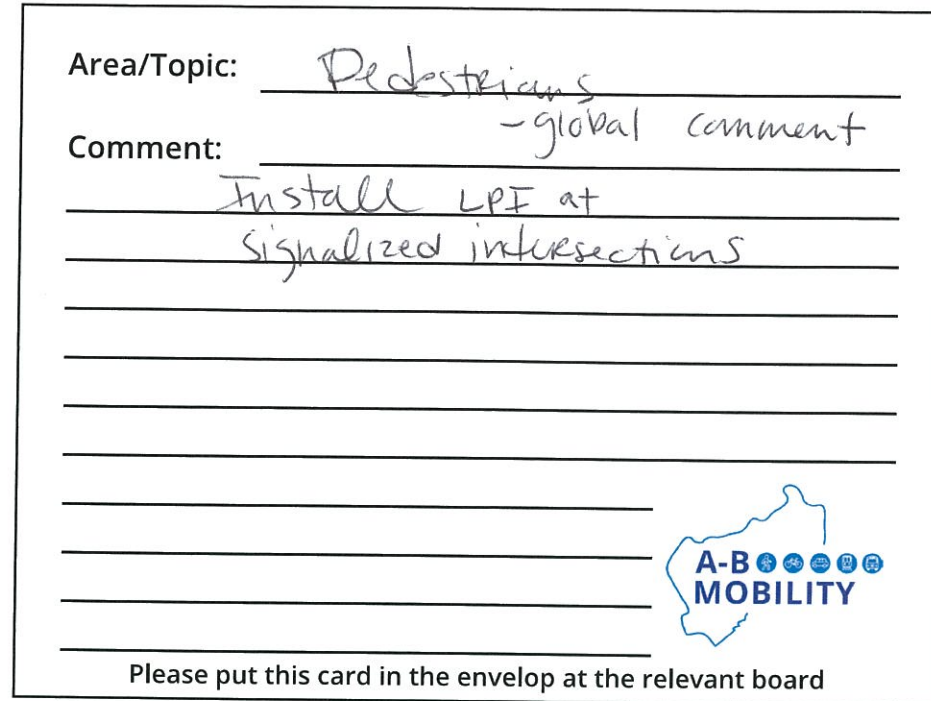 Area/Topic: Pedestrians
- global comment
Comment:
Install LPI at
signalized intersections
A-B
MOBILITY
Please put this card in the envelop at the relevant board